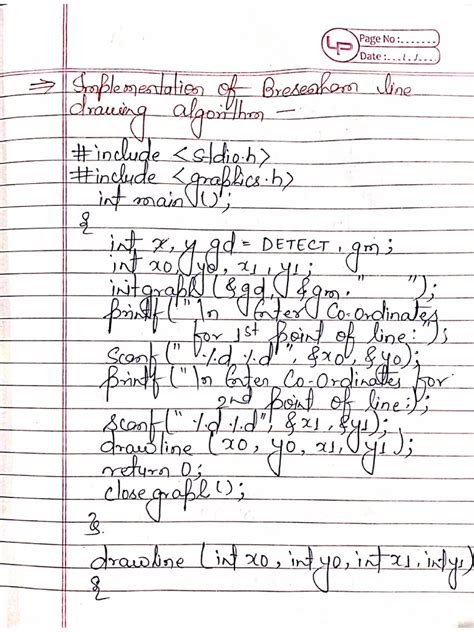 LP
Page No :.......
Date :.../.../...
⇒ Implementation of Bresenham line
drawing algorithm -
#include <stdio.h>
#include <graphics.h>
int main ();
{
int x, y gd = DETECT, gm;
int x0, y0, x1, y1;
initgraph (&gd, &gm, " ");
printf ("\n Enter Co-Ordinates
for 1st point of line: ");
Scanf (" %d %d", &x0, &y0);
printf ("\n Enter Co-Ordinates for
2nd point of line:);
Scanf (" %d %d", &x1, &y1);
drawline (x0, y0, x1, y1);
return 0;
closegraph();
}
drawline (int x0, int y0, int x1, int y1)
{